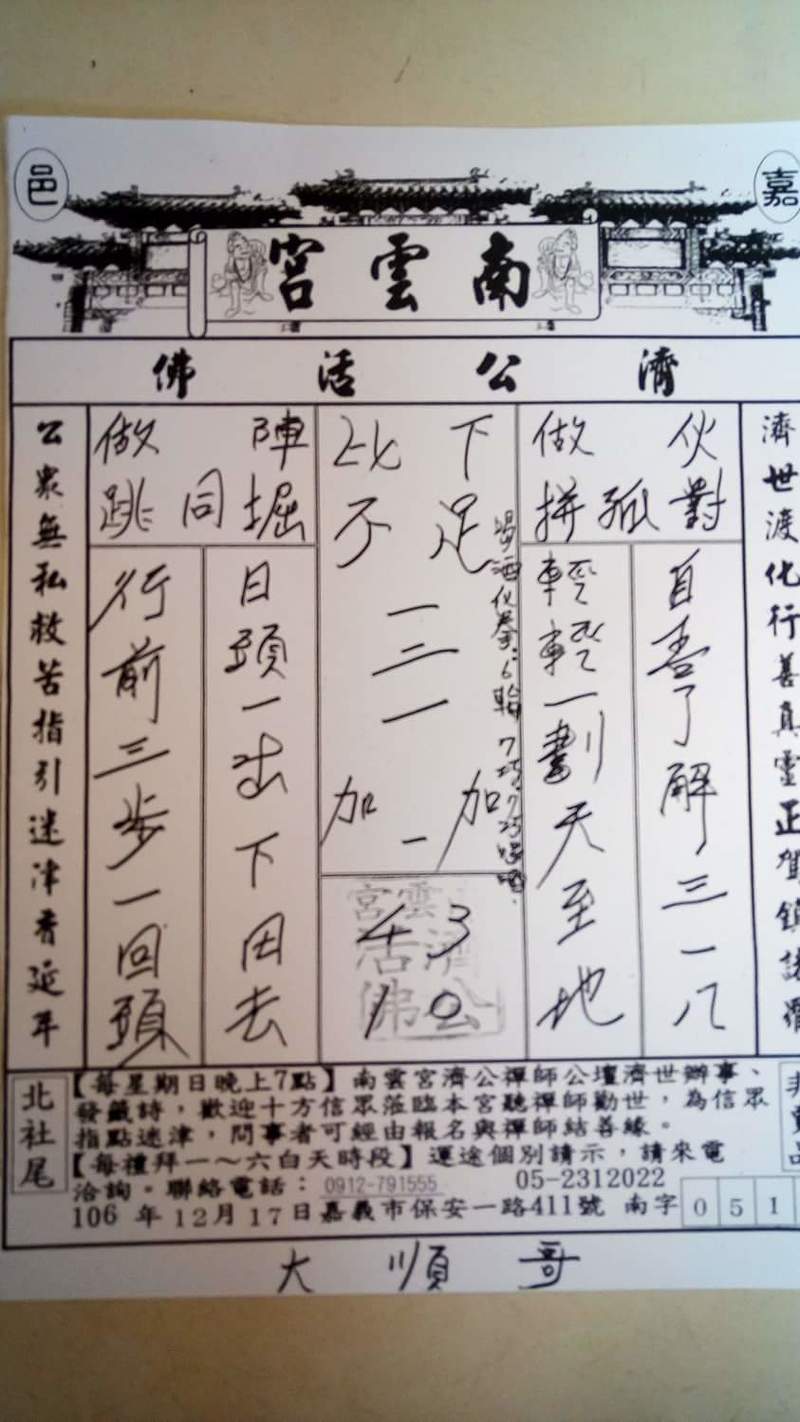 嘉邑
南雲宮
濟公活佛
濟世渡化行善真靈正駕鎮諸羅
伙對
孤
做拼
自善了解三一八
輕輕一劃天至地
下足
比不
一三一
加一加
43
10
陣堀
同
做跳
日頭一出下田去
行前三步一回頭
公眾無私救苦指引迷津壽延年
南雲宮
濟公
活佛
北社尾
【每星期日晚上7點】南雲宮濟公禪師公壇濟世辦事、
發籤詩，歡迎十方信眾蒞臨本宮聽禪師勸世，為信眾
指點迷津，問事者可經由報名與禪師結善緣。
【每禮拜一～六白天時段】運途個別請示，請來電
洽詢。聯絡電話：0912-791555 05-2312022
106年12月17日嘉義市保安一路411號 南字051
非賣品
大順哥